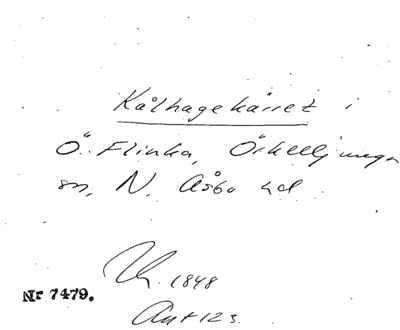 Kålhagekärret i
Ö. Flinka, Örkelljunga
sn, N. Åsbo hd
1848
Nr 7479.
Ant 123.